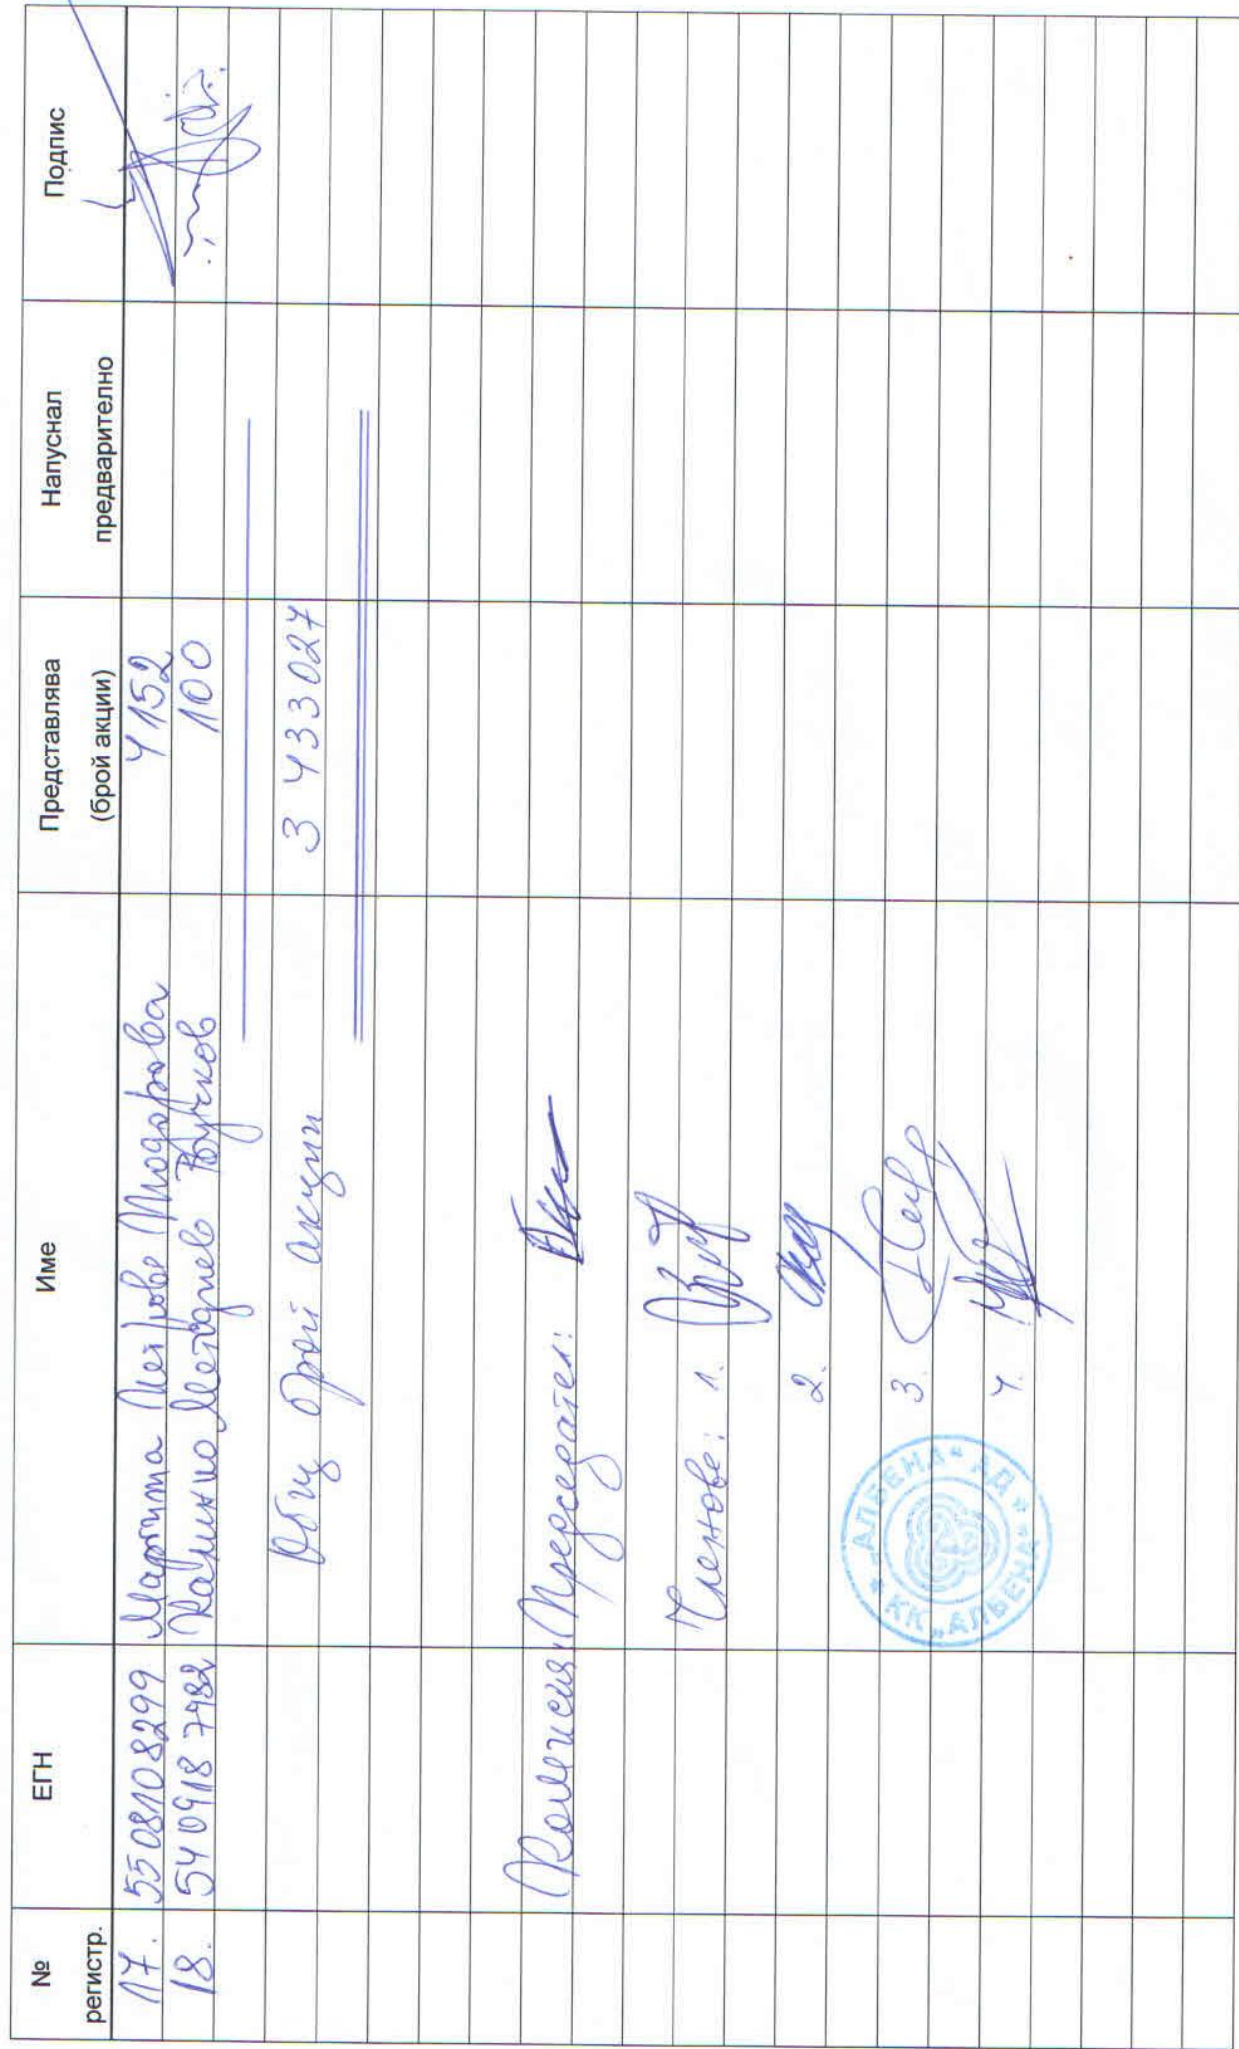 № регистр. ЕГН Име Представлява (брой акции) Напуснал предварително Подпис
17. 5508108299 Маргита Петрова Тодорова 4152
18. 5409187982 Калинко Методиев 100
Общ брой акции 3 433027
Комисия, Председател:
Членове: 1.
2.
3.
4.
"АЛБЕНА" АД * КК "АЛБЕНА" *